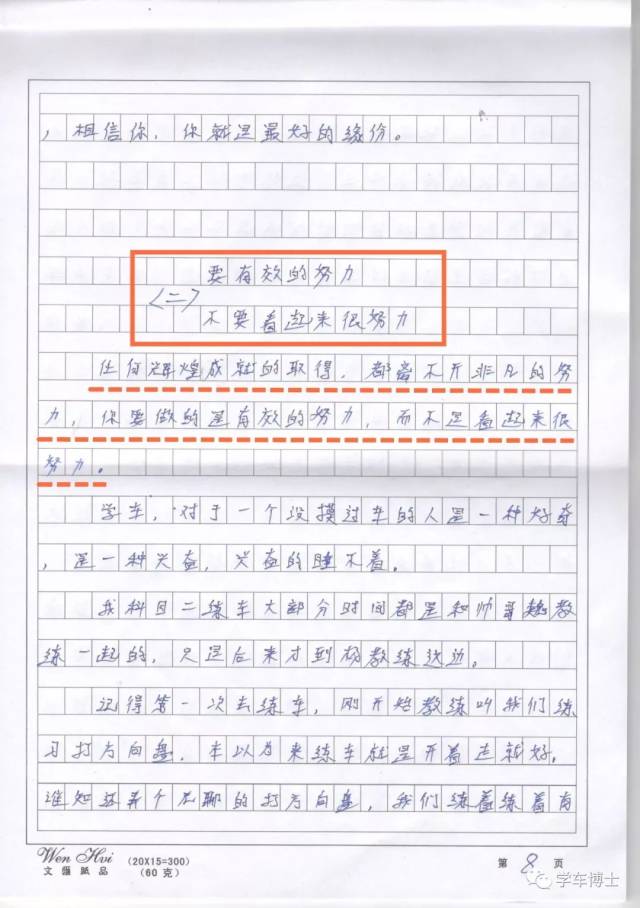 ，相信你，你就是最好的缘份。
要有效的努力
<二>
不要看起来很努力
任何辉煌成就的取得，都离不开非凡的努
力，你要做的是有效的努力，而不是看起来很
努力。
学车，对于一个没摸过车的人是一种好奇
，是一种兴奋，兴奋的睡不着。
我科目二练车大部分时间都是和帅哥魏教
练一起的，只是后来才到杨教练这边。
记得第一次去练车，刚开始教练叫我们练
习打方向盘，本以为来练车就是开着走就好，
谁知还弄个无聊的打方向盘，我们练着练着有
Wen Hvi
文汇纸品
(20X15=300)
(60克)
第 8 页
学车博士